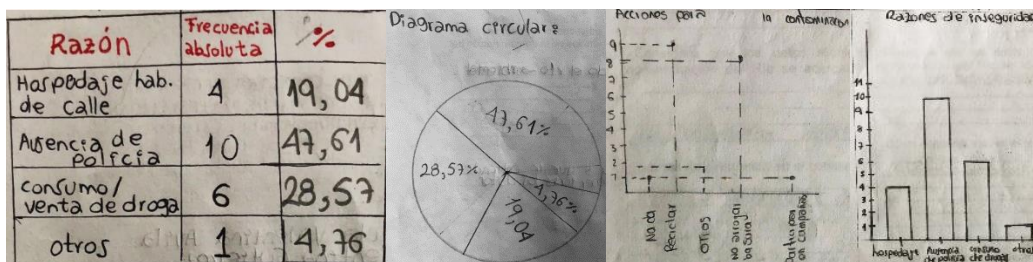 Razón
Frecuencia absoluta
%
Hospedaje hab. de calle
4
19,04
Ausencia de policía
10
47,61
consumo/ venta de droga
6
28,57
otros
1
4,76
Diagrama circular:
47,61%
28,57%
4,76%
19,04
Acciones para la contaminación
9
8
7
6
5
4
3
2
1
Nada
Reciclar
otros
no arrojar basura
Participar en campañas
Razones de inseguridad
11
10
9
8
7
6
5
4
3
2
1
hospedaje
Ausencia de policía
consumo de drogas
otros